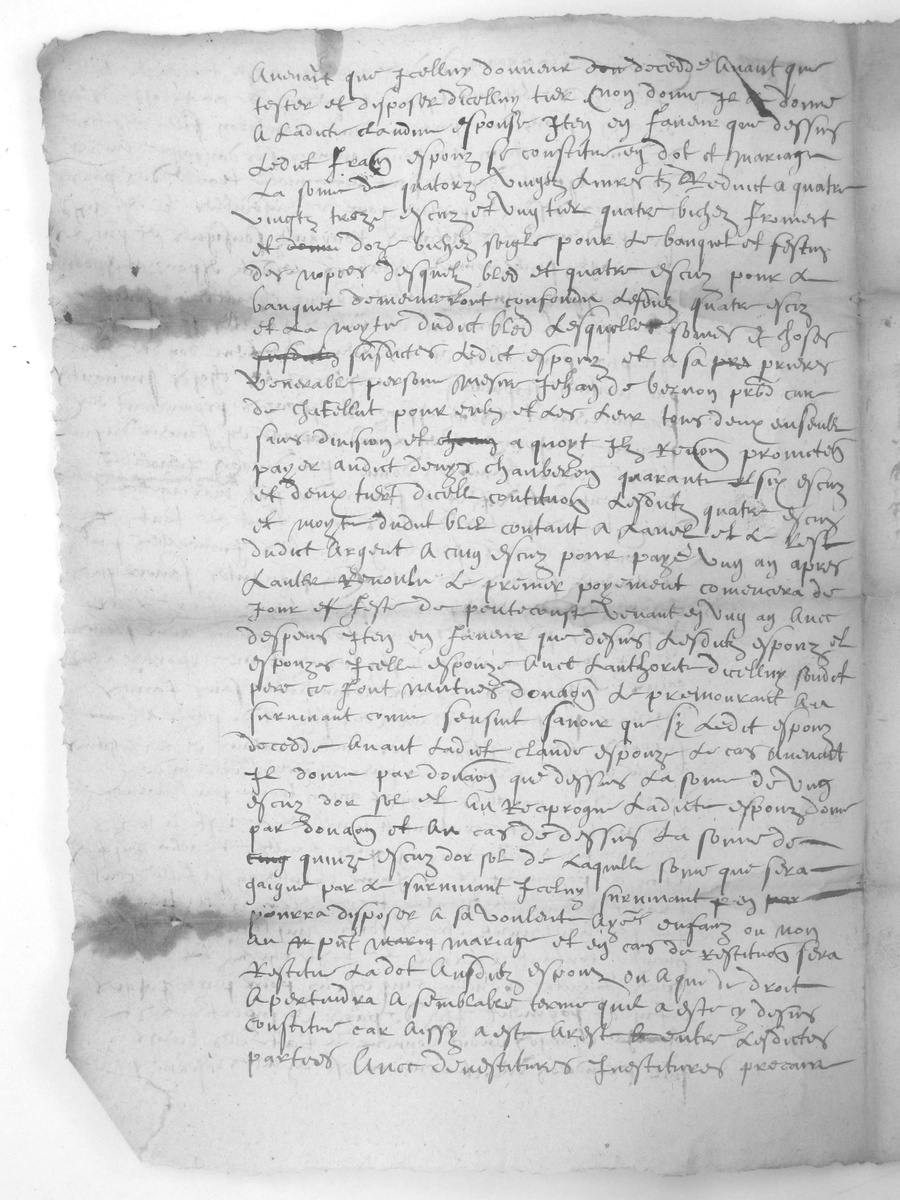 avenant que Icelluy donneur decedde avant que
tester et disposer dicelluy tier non donne Il a donne
a ladicte claudine espouse Iten en faveur que dessus
ledict espoux se constitue en dot et mariage
la some de quatorze vingtz livres tz Reduict a quatre
vingtz treze escuz et ung tier quatre bichez froment
et doze bichez seigle pour le banquet et festin
des nopces desquelz bled et quatre escuz pour le
banquet demeureront confondu lesdictz quatre escuz
et la moytie dudict bled lesquelles somes et choses
susdictes ledict espoux et a sa prieres
Venerable persone messire Jehan de vernon pbre cure
de chatellut pour eulx et les leur tous deux ensemble
sans division et a quoyt Ilz promecten
payer audict denys chauberon quarante six escuz
et deux tiert dicelle constitution lesdictz quatre escuz
et moytie dudict bled contant a et le reste
dudict argent a cinq escuz pour paye ung an apres
lautre Revoulu le premier payement comencera de
Jour et feste de pentecouste venant en ung an avec
despens Iten en faveur que desus lesdictz espoux et
espouzes Icelle espouze avec lauthorite dicelluy sondict
pere ce font mutues donaon le premourant au
survivant come sensuit savoir que sy ledict espoux
decedde avant ladicte claude espouze le cas avenant
Il donne par donaon que dessus la some de ung
escuz dor sol et au Reciproque ladicte espouze done
par donaon et au cas de dessus la some de
cinq quinze escuz dor sol de laquelle some que sera
gaigne par le survivant Icelluy survivant
pourra disposer a sa voulente ayent enfanz ou non
au pnt mariage et en cas de restituon sera
Restitue la dot ausdictz espoux ou a qui de droit
apertiendra a semblable terme quil a este cy desus
constitue car aissy a este areste entre lesdictes
partees avec devestitures Investitures precaire